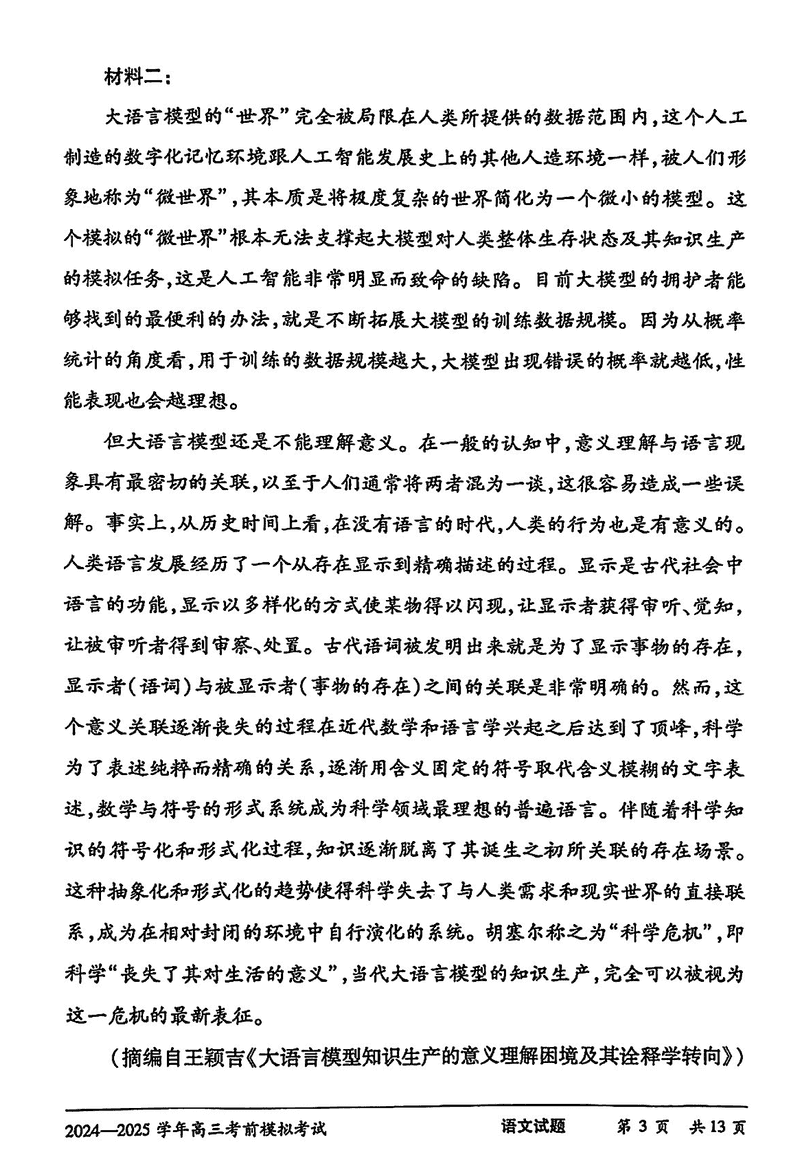 材料二：
大语言模型的“世界”完全被局限在人类所提供的数据范围内，这个人工
制造的数字化记忆环境跟人工智能发展史上的其他人造环境一样，被人们形
象地称为“微世界”，其本质是将极度复杂的世界简化为一个微小的模型。这
个模拟的“微世界”根本无法支撑起大模型对人类整体生存状态及其知识生产
的模拟任务，这是人工智能非常明显而致命的缺陷。目前大模型的拥护者能
够找到的最便利的办法，就是不断拓展大模型的训练数据规模。因为从概率
统计的角度看，用于训练的数据规模越大，大模型出现错误的概率就越低，性
能表现也会越理想。
但大语言模型还是不能理解意义。在一般的认知中，意义理解与语言现
象具有最密切的关联，以至于人们通常将两者混为一谈，这很容易造成一些误
解。事实上，从历史时间上看，在没有语言的时代，人类的行为也是有意义的。
人类语言发展经历了一个从存在显示到精确描述的过程。显示是古代社会中
语言的功能，显示以多样化的方式使某物得以闪现，让显示者获得审听、觉知，
让被审听者得到审察、处置。古代语词被发明出来就是为了显示事物的存在，
显示者（语词）与被显示者（事物的存在）之间的关联是非常明确的。然而，这
个意义关联逐渐丧失的过程在近代数学和语言学兴起之后达到了顶峰，科学
为了表述纯粹而精确的关系，逐渐用含义固定的符号取代含义模糊的文字表
述，数学与符号的形式系统成为科学领域最理想的普遍语言。伴随着科学知
识的符号化和形式化过程，知识逐渐脱离了其诞生之初所关联的存在场景。
这种抽象化和形式化的趋势使得科学失去了与人类需求和现实世界的直接联
系，成为在相对封闭的环境中自行演化的系统。胡塞尔称之为“科学危机”，即
科学“丧失了其对生活的意义”，当代大语言模型的知识生产，完全可以被视为
这一危机的最新表征。
（摘编自王颖吉《大语言模型知识生产的意义理解困境及其诠释学转向》）
2024—2025 学年高三考前模拟考试 语文试题 第 3 页 共 13 页